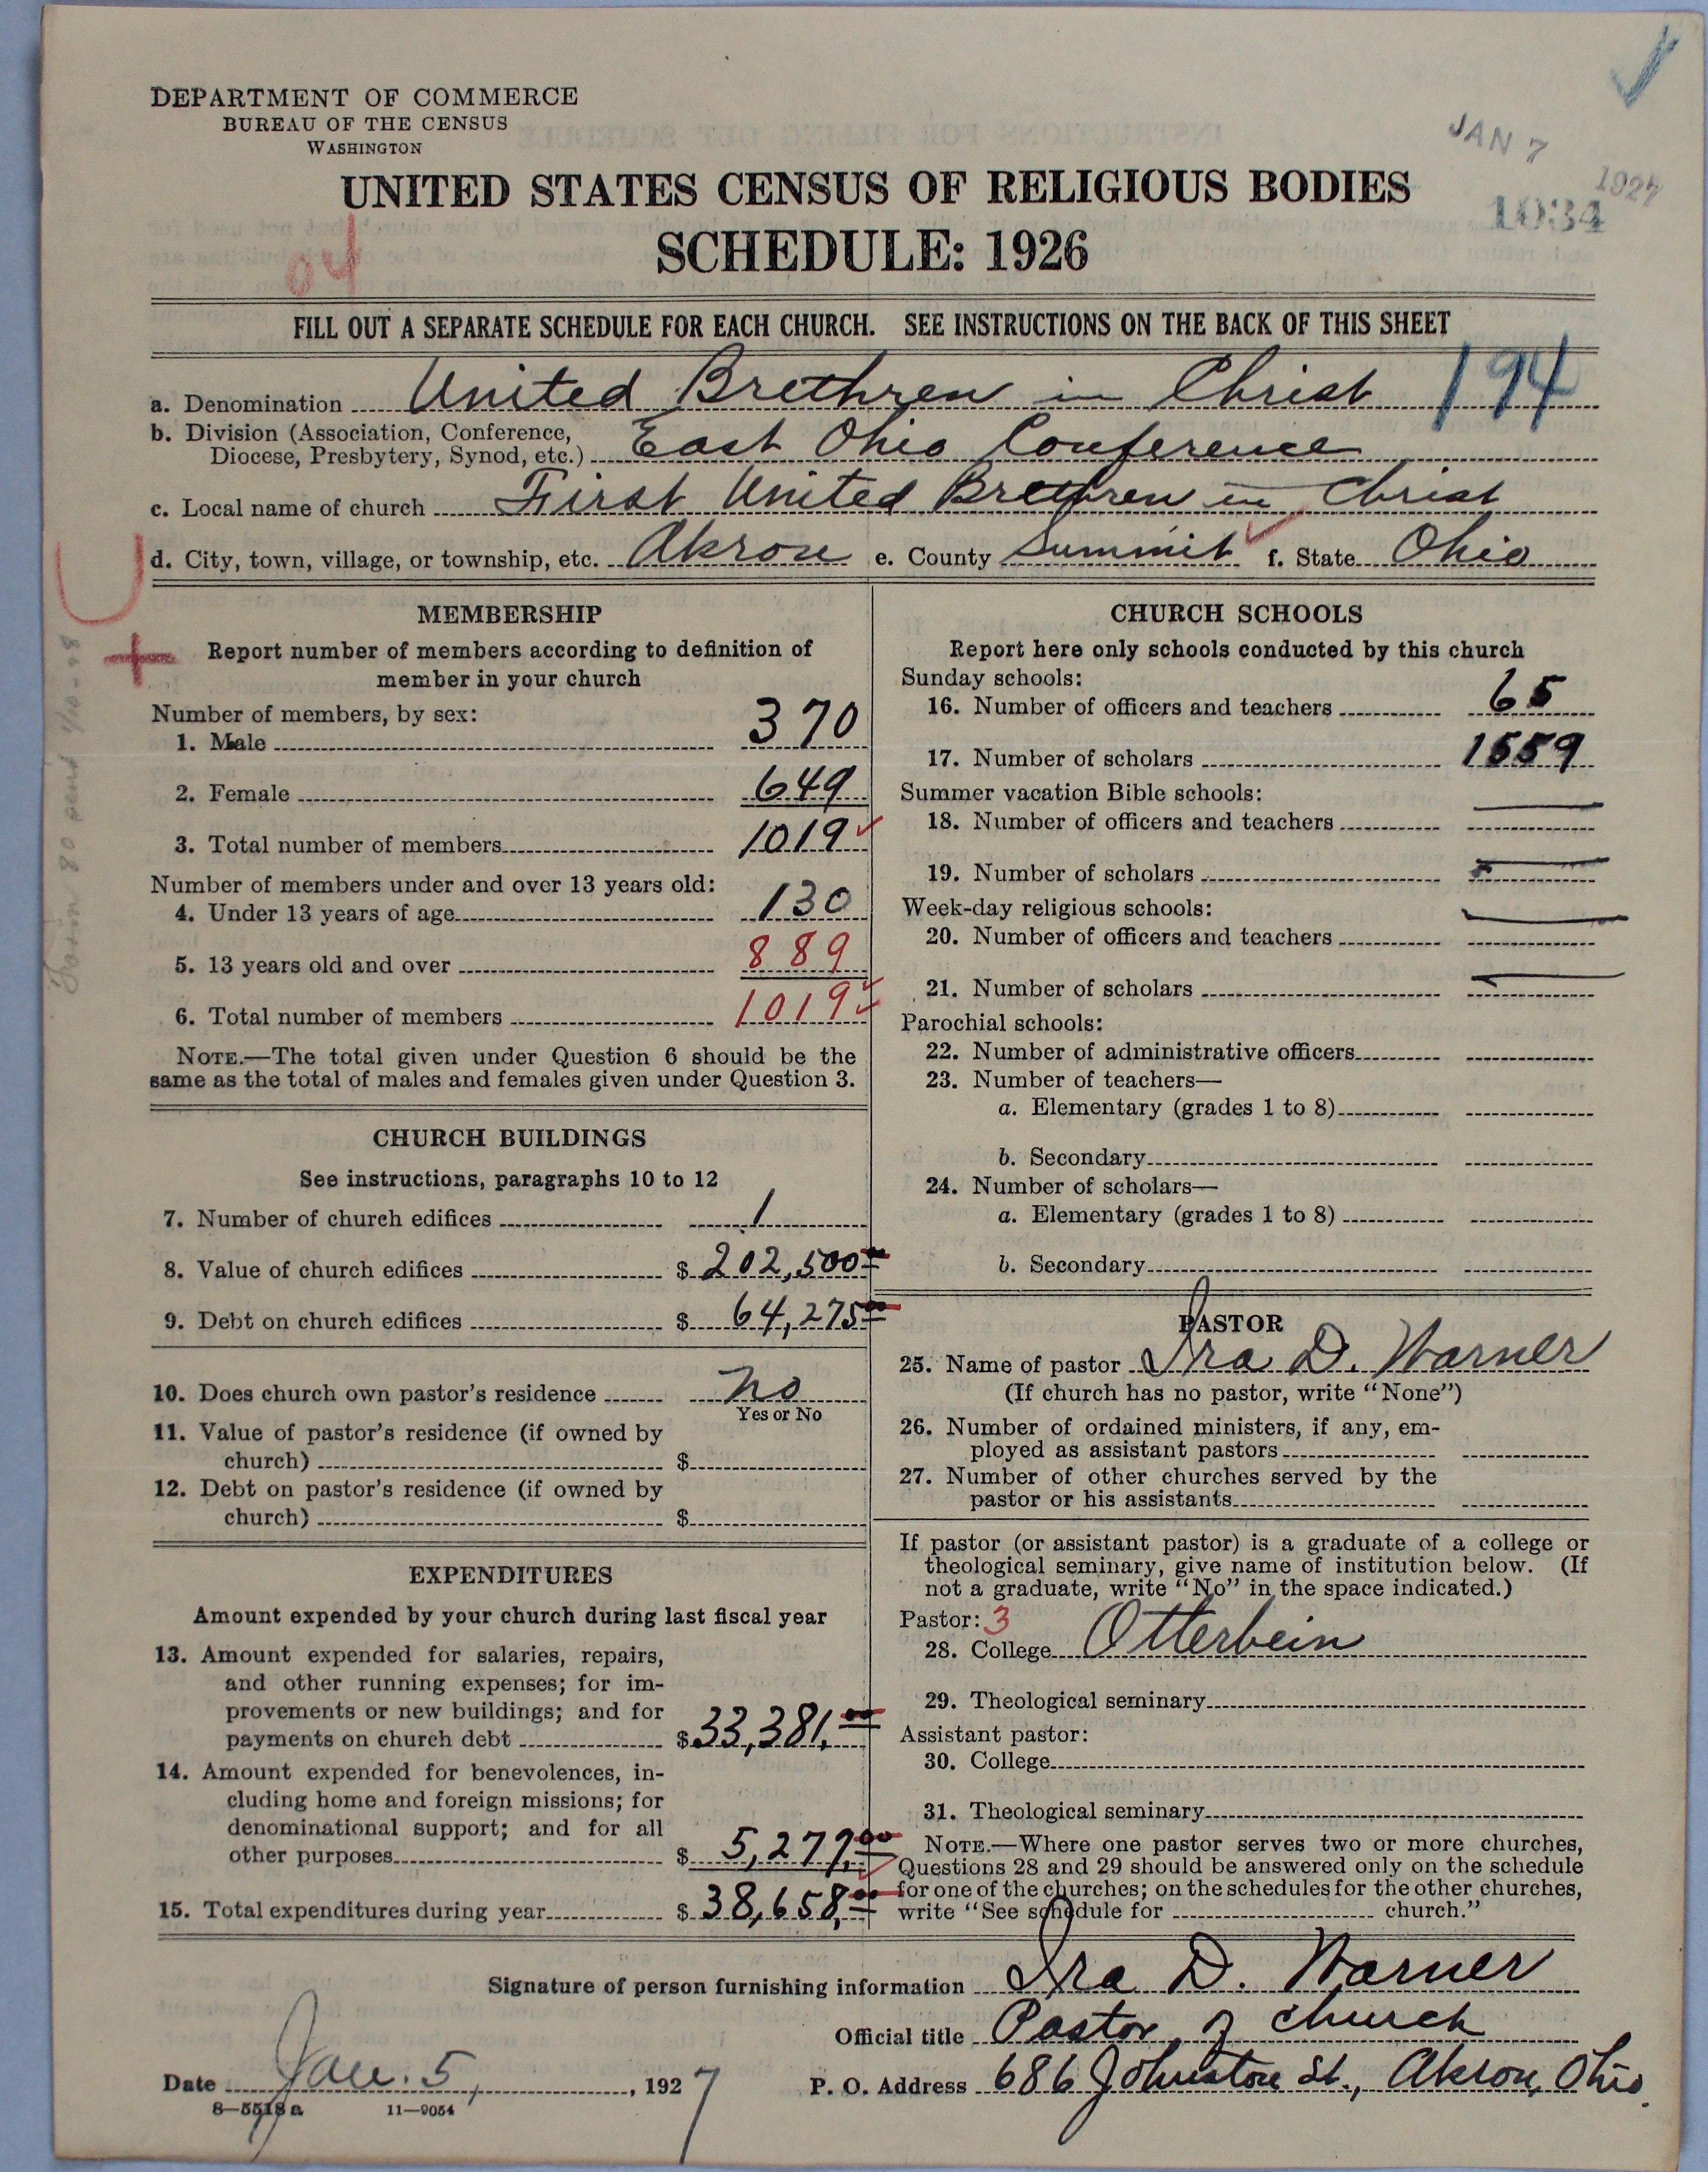 DEPARTMENT OF COMMERCE
BUREAU OF THE CENSUS
WASHINGTON
JAN 7 1927
1034
UNITED STATES CENSUS OF RELIGIOUS BODIES
SCHEDULE: 1926
04
FILL OUT A SEPARATE SCHEDULE FOR EACH CHURCH. SEE INSTRUCTIONS ON THE BACK OF THIS SHEET
194
a. Denomination United Brethren in Christ
b. Division (Association, Conference,
Diocese, Presbytery, Synod, etc.) East Ohio Conference
c. Local name of church First United Brethren in Christ
d. City, town, village, or township, etc. Akron e. County Summit f. State Ohio
MEMBERSHIP
Report number of members according to definition of
member in your church
Number of members, by sex:
1. Male 370
2. Female 649
3. Total number of members 1019
Number of members under and over 13 years old:
4. Under 13 years of age 130
5. 13 years old and over 889
6. Total number of members 1019
NOTE.—The total given under Question 6 should be the
same as the total of males and females given under Question 3.
CHURCH BUILDINGS
See instructions, paragraphs 10 to 12
7. Number of church edifices 1
8. Value of church edifices $ 202,500 00
9. Debt on church edifices $ 64,275 00
10. Does church own pastor's residence no
Yes or No
11. Value of pastor's residence (if owned by
church) $
12. Debt on pastor's residence (if owned by
church) $
EXPENDITURES
Amount expended by your church during last fiscal year
13. Amount expended for salaries, repairs,
and other running expenses; for im-
provements or new buildings; and for
payments on church debt $ 33,381.00
14. Amount expended for benevolences, in-
cluding home and foreign missions; for
denominational support; and for all
other purposes $ 5,277.00
15. Total expenditures during year $ 38,658.00
CHURCH SCHOOLS
Report here only schools conducted by this church
Sunday schools:
16. Number of officers and teachers 65
17. Number of scholars 1559
Summer vacation Bible schools:
18. Number of officers and teachers —
19. Number of scholars —
Week-day religious schools:
20. Number of officers and teachers —
21. Number of scholars —
Parochial schools:
22. Number of administrative officers
23. Number of teachers—
a. Elementary (grades 1 to 8)
b. Secondary
24. Number of scholars—
a. Elementary (grades 1 to 8)
b. Secondary
PASTOR
25. Name of pastor Ira D. Warner
(If church has no pastor, write "None")
26. Number of ordained ministers, if any, em-
ployed as assistant pastors
27. Number of other churches served by the
pastor or his assistants
If pastor (or assistant pastor) is a graduate of a college or
theological seminary, give name of institution below. (If
not a graduate, write "No" in the space indicated.)
Pastor: 3
28. College Otterbein
29. Theological seminary
Assistant pastor:
30. College
31. Theological seminary
NOTE.—Where one pastor serves two or more churches,
Questions 28 and 29 should be answered only on the schedule
for one of the churches; on the schedules for the other churches,
write "See schedule for church."
Signature of person furnishing information Ira D. Warner
Official title Pastor of church
Date Jan. 5, 1927 P. O. Address 686 Johnston St., Akron, Ohio.
8—5518 a 11—9054